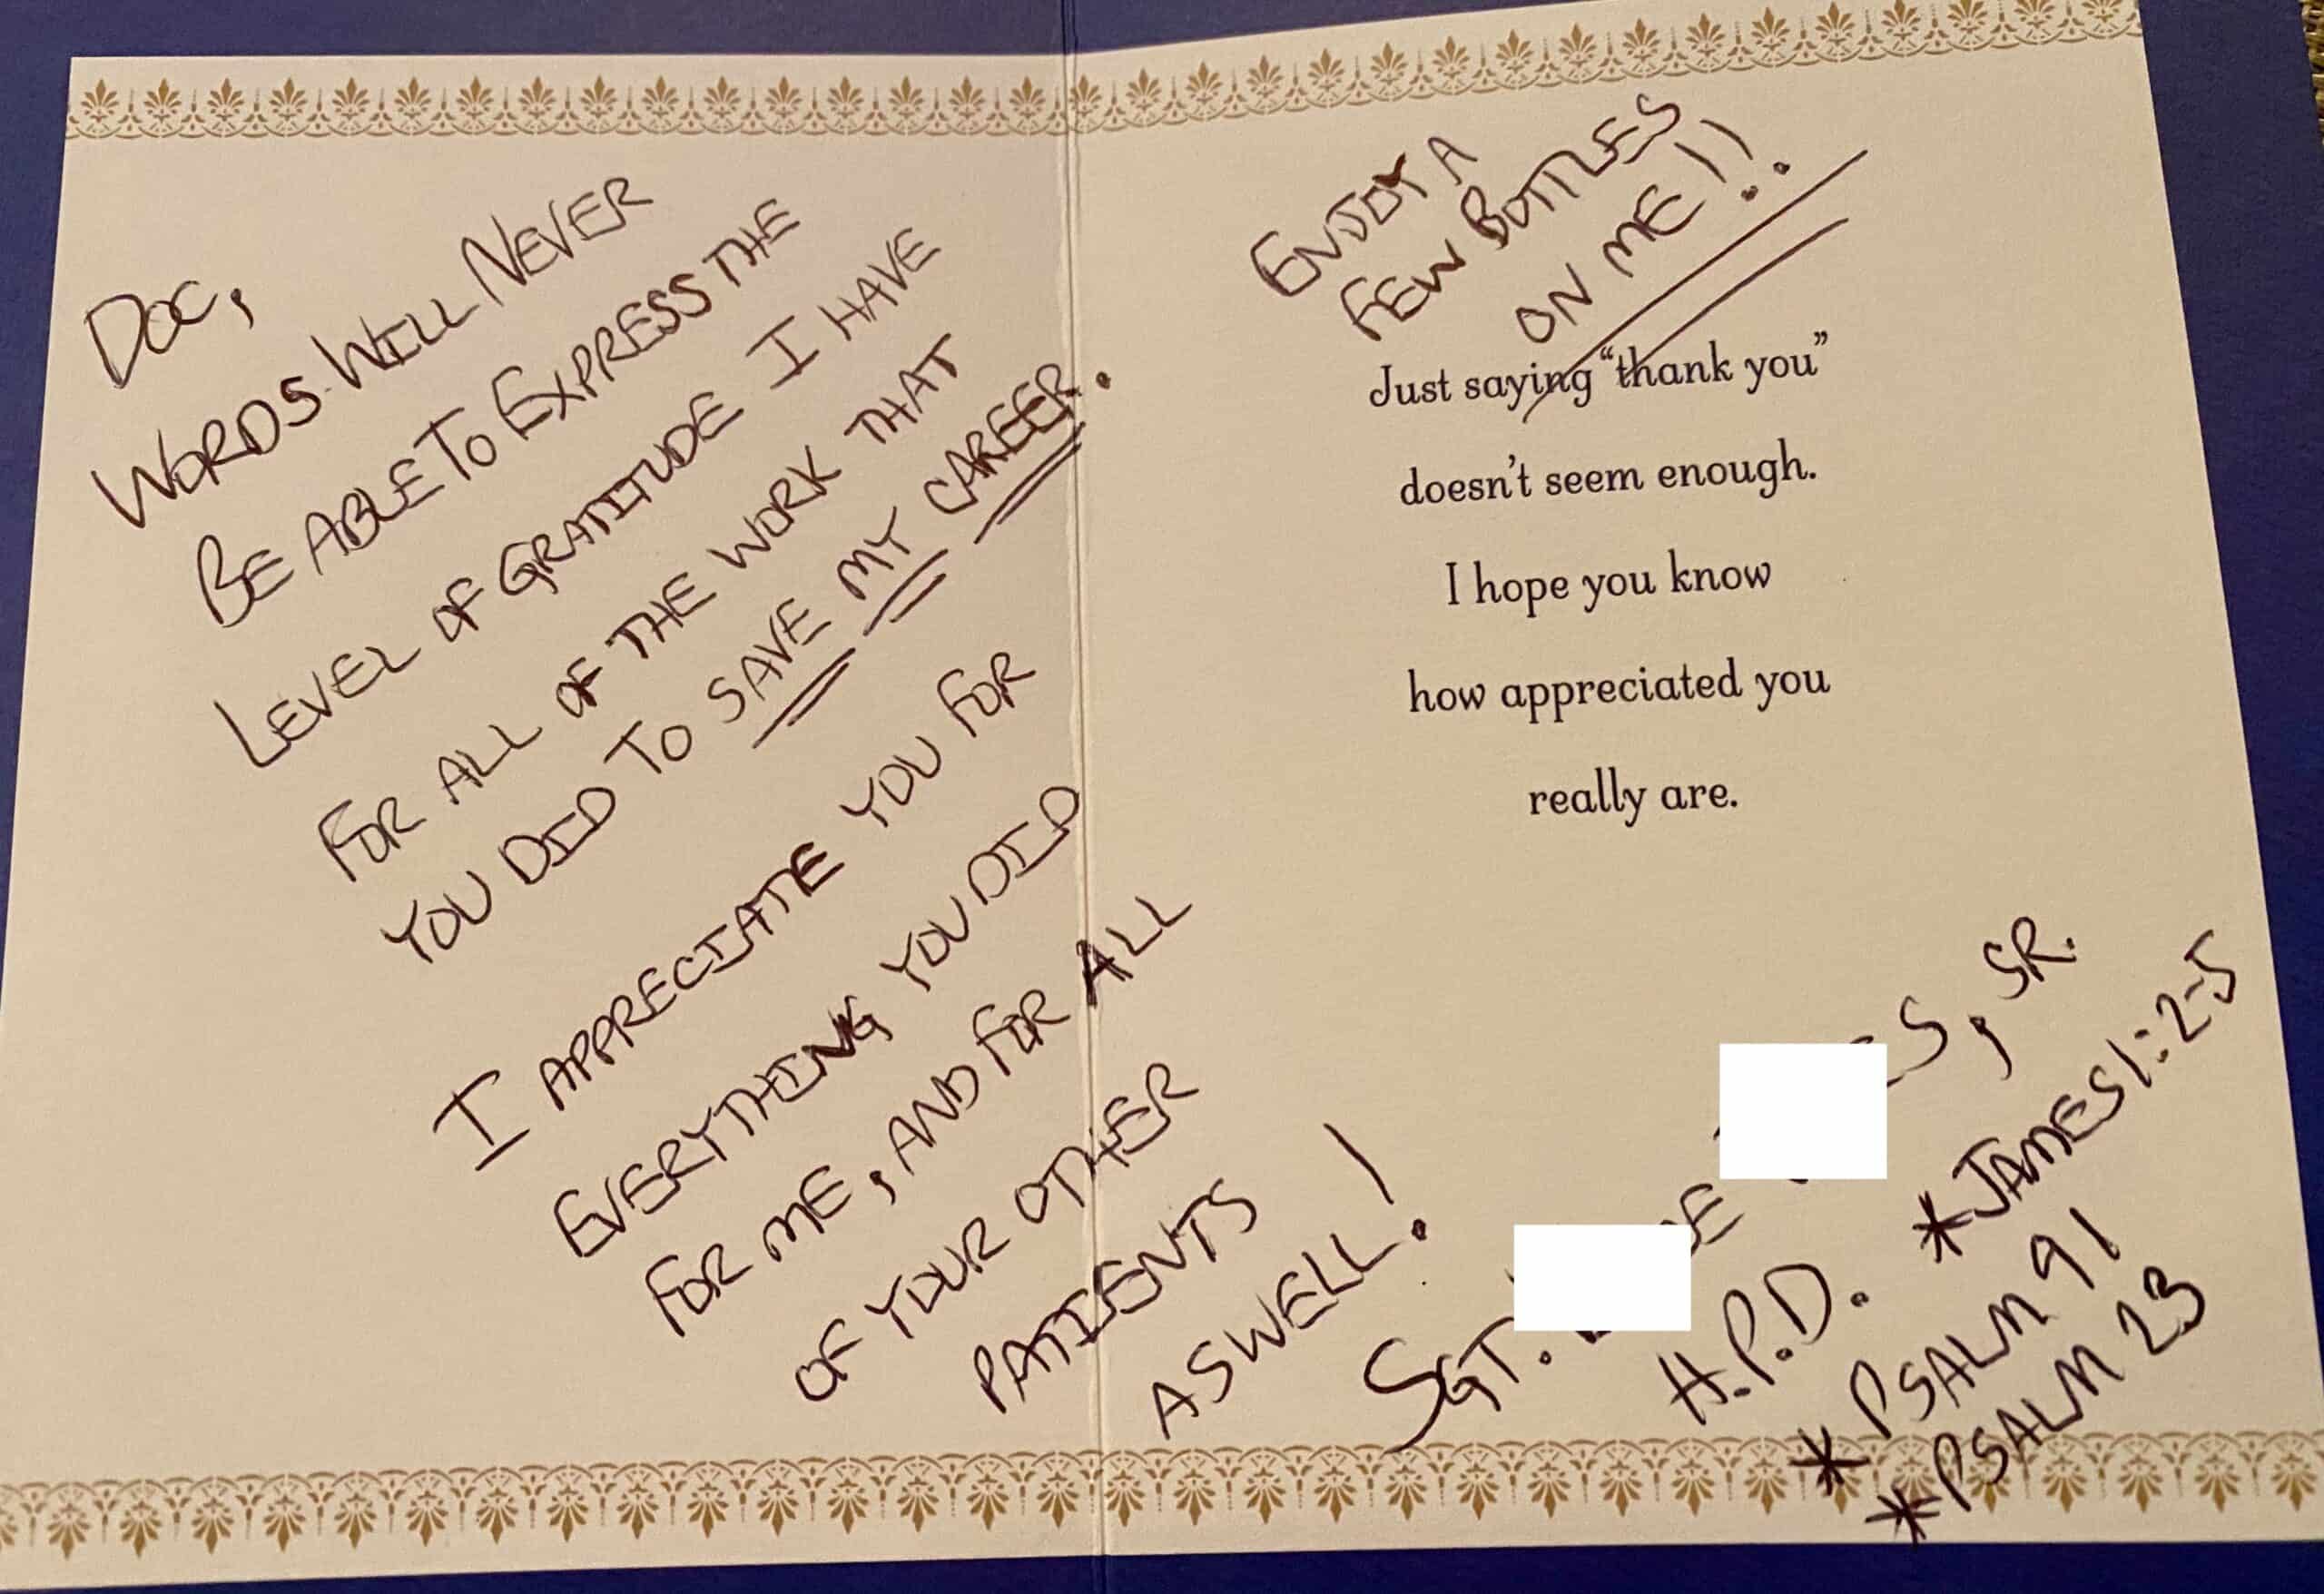 Doc,
WORDS WILL NEVER
BE ABLE TO EXPRESS THE
LEVEL OF GRATITUDE I HAVE
FOR ALL OF THE WORK THAT
YOU DID TO SAVE MY CAREER.
I APPRECIATE YOU FOR
EVERYTHING YOU DID
FOR ME, AND FOR ALL
OF YOUR OTHER
PATIENTS
ASWELL!
ENJOY A
FEW BOTTLES
ON ME!!
Just saying “thank you”
doesn’t seem enough.
I hope you know
how appreciated you
really are.
SGT. SR.
H.P.D.
*JAMES 1:2-5
*PSALM 91
*PSALM 23